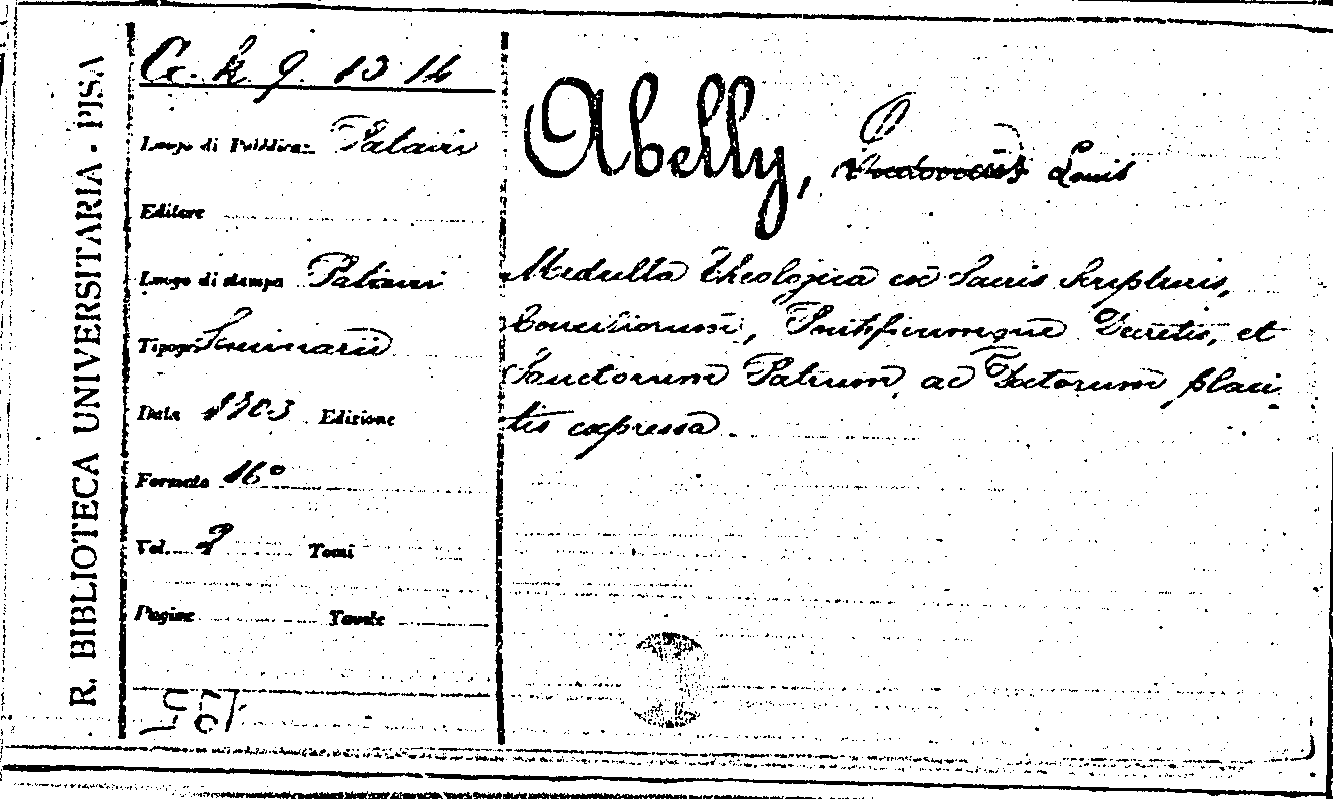 R. BIBLIOTECA UNIVERSITARIA - PISA
G. k 9. 13 14
Luogo di Pubblicaz. Patavii
Editore
Luogo di stampa Patavii
Tipogr. Seminarii
Data 1703 Edizione
Formato 16°
Vol. 2 Tomi
Pagine Tavole
Abelly, Louis
Medulla Theologica ex Sacris Scripturis,
Conciliorum, Pontificumque Decretis, et
Sanctorum Patrum, ac Doctorum placi-
tis expressa.